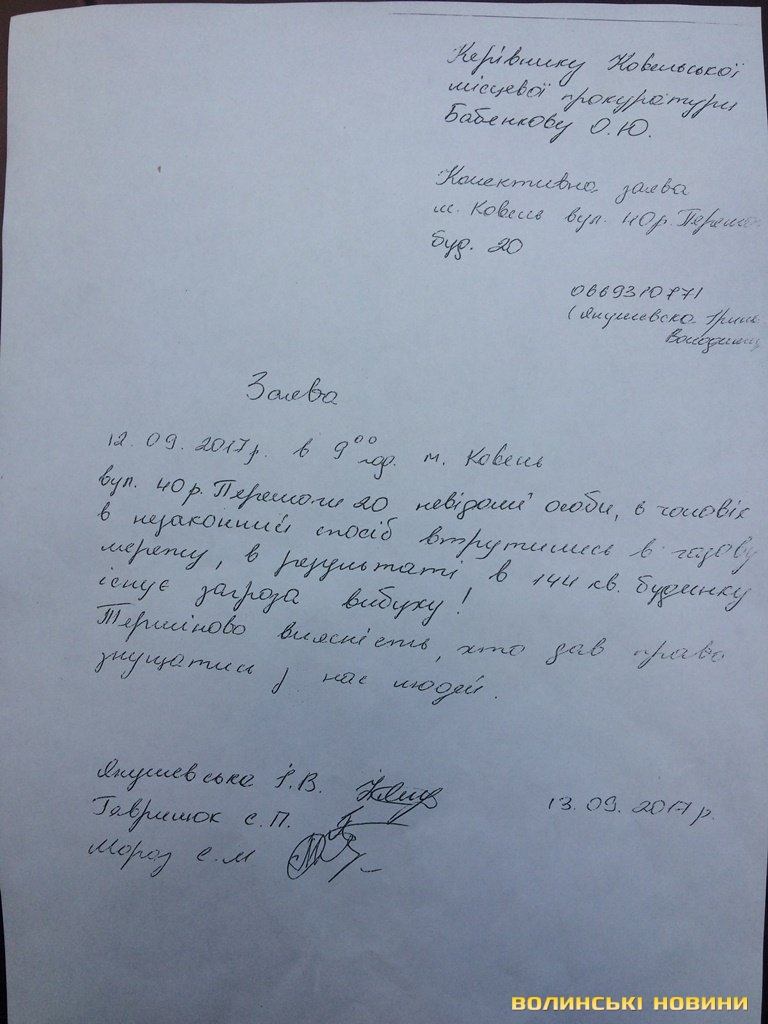 Керівнику Ковельської
місцевої прокуратури
Бабенкову О.Ю.
Колективна заява
м. Ковель вул. 40р. Перемо
буд. 20
0669310771
(Янушевска Ірина
Володими
Заява
12.09.2017р. в 9⁰⁰ год. м. Ковель
вул. 40р. Перемоги 20 невідомі особи, 6 чоловік
в незаконний спосіб втрутились в газову
мережу, в результаті в 144 кв. будинку
існує загроза вибуху!
Терміново виясність, хто дав право
знущатись з нас людей.
Янушевська І.В.
Гаврилюк Є.П.
Мороз Є.М
13.09.2017р.
ВОЛИНСЬКІ НОВИНИ